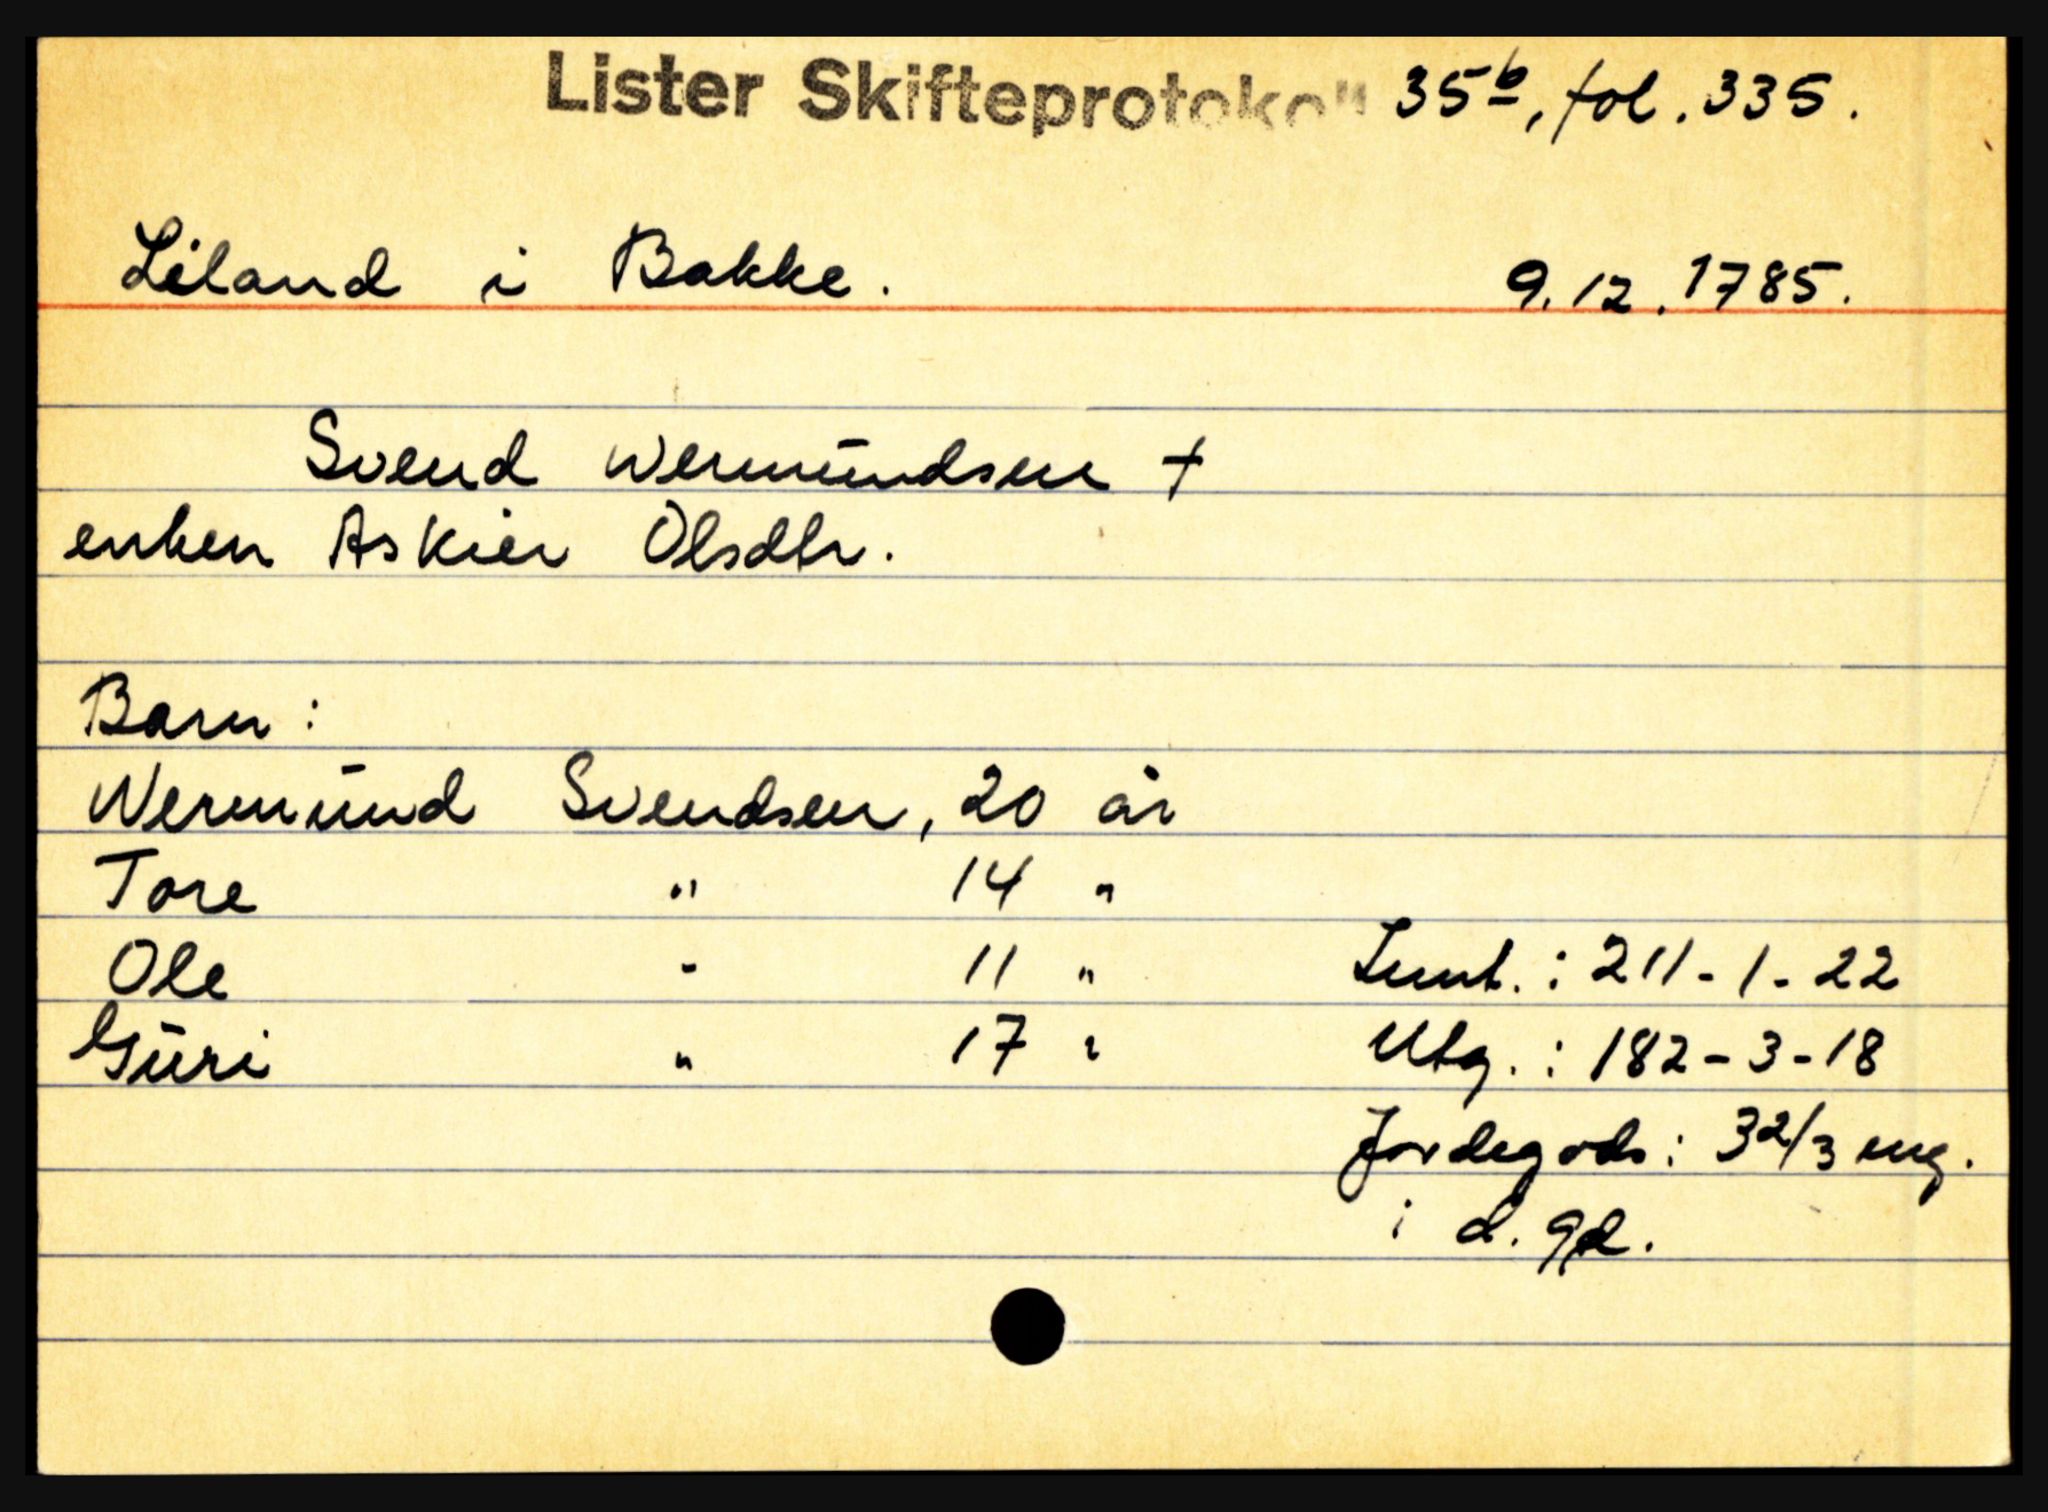 Lister Skifteprotokoll 35b, fol. 335.
Liland i Bakke. 9.12.1785.
Svend Wermundsen +
enken Askier Olsdtr.
Barn:
Wermund Svendsen, 20 år
Tore " 14 "
Ole " 11 " Innt.: 211-1-22
Guri " 17 " Utg.: 182-3-18
Jordegods: 3 2/3 eng.
i d. gd.